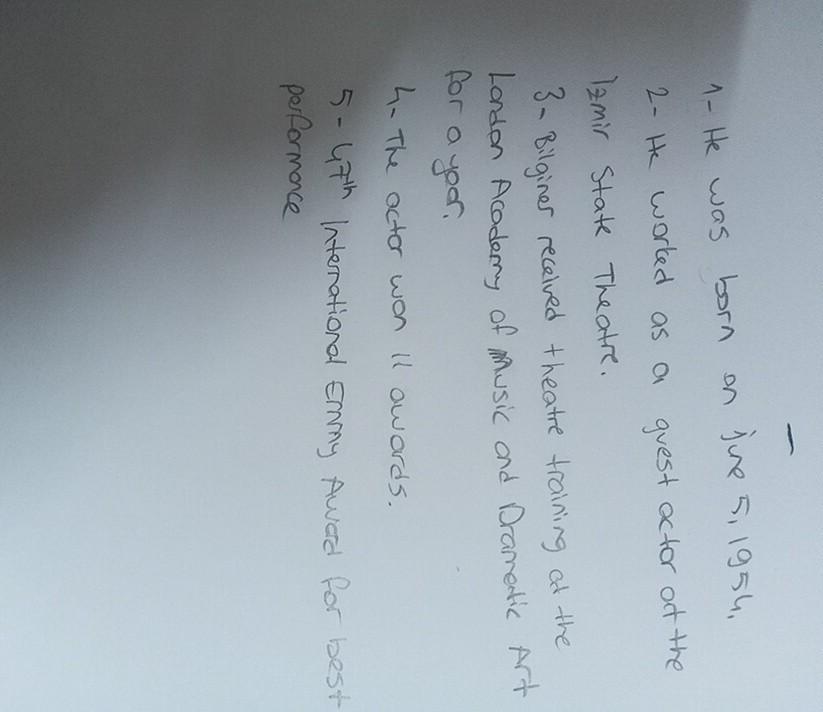 1- He was born on june 5, 1954.
2- He worked as a guest actor at the
Izmir State Theatre.
3- Bilginer received theatre training at the
London Academy of Music and Dramatic Art
for a year.
4- The actor won 11 awards.
5- 47th International Emmy Award for best
performance